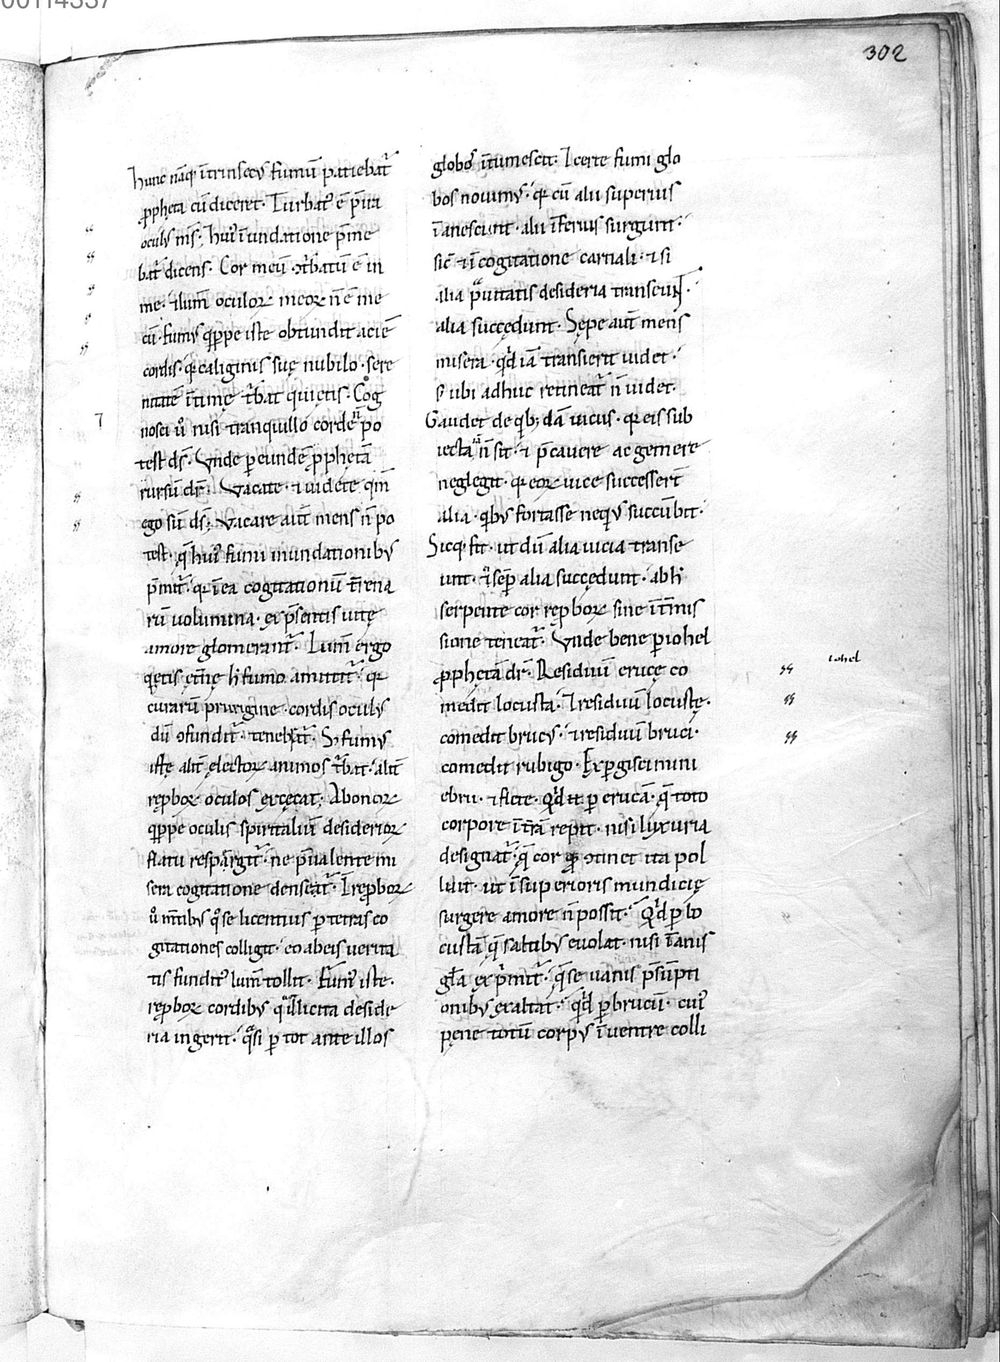 00114337
302
hunc nāq; ītrinsecꝰ fumū patiebat᷑
ꝓpheta cū diceret· Turbatꝰ ē p̄ ira
oculꝰ mš· huiꝰ īundatione p̄me
bat᷑ dicens· Cor meū ↄt᷑batū ē in
me· ⁊ lum̄ oculoꝝ meoꝝ n̄ ē me
cū· fumꝰ q̄ppe iste obtundit aciē
cordis· q̄ caliginis suę nubilo· sere
nitatē ītimę t᷑bat quietis· Cog
nosci ū nisi tranquillo corde n̄ po
test dš· Vnde p eundē ꝓphetā
rursū dr̄· Vacate· ⁊ uidete qm̄
ego sū dš· Vacare aut̄ mens n̄ po
test· q̄ huiꝰ fumi inundationibꝰ
p̄mit᷑· q̄ ī ea cogitationū t̄rena
rū uolumina· ex p̄sentis uitę
amore glomerant᷑· Lum̄ ergo
q̇etis et̄nę h̄ fumo amittit᷑· q̄
curarū prurigine· cordis oculꝰ
dū ↄfundit᷑· tenebr̄at᷑· S; fumꝰ
iste alit̄ electoꝝ animos t᷑bat· alit̄
reꝓboꝝ oculos excecat; A bonoꝝ
q̄ppe oculis spiritaliū desiderioꝝ
flatu respargit᷑· ne p̄ualente mi
sera cogitatione denseat᷑· I reꝓboꝝ
ū m̄tibꝰ q̊ se licentius p tetras co
gitationes colligit· eo ab eis uerita
tis fundit᷑ lum̄ tollit· Fumꝰ iste·
reꝓboꝝ cordibꝰ q̊t illicita deside
ria ingerit· q̊si p tot ante illos
globos ītumescit· I certe fumi glo
bos nouimꝰ· q̄ cū alii superius
īanescunt· alii īferius surgunt·
sic̄ ⁊ ī cogitatione carnali· ⁊ si
alia prauitatis desideria transeunt·
alia succedunt· Sępe aut̄ mens
misera· qd̄ iā transierit uidet·
s; ubi adhuc retineat᷑ n̄ uidet·
Gaudet de qb; dā uiciis· q̄ eis sub
iecta iā n̄ sit· ⁊ p̄cauere ac gemere
neglegit· q̄ eoꝝ uice successert̄
alia· qbꝰ fortasse neqꝰ succūbit·
Sicq; fit· ut dū alia uicia transe
unt· ⁊ sep̄ alia succedunt· ab h̄
serpente cor reꝓboꝝ sine īt̄mis
sione teneat᷑· Vnde bene p iohel
ꝓphetā dr̄· Residuū erucę co
medit locusta· ⁊ residuū locustę·
comedit brucꝰ· ⁊ residuū bruci·
comedit rubigo· Exꝑgiscimini
ebrii· ⁊ flete· Qd̄ ei p erucā· q̄ toto
corpore ī t̄rā repit· nisi luxuria
designat᷑· q̄ cor qd̄ ↄtinet ita pol
luit· ut ī superioris mundicię
surgere amore n̄ possit· Qd̄ p lo
custā q̄ saltibꝰ euolat· nisi īanis
gl̄a exp̄mit᷑· q̄ se uanis p̄sūpti
onibꝰ exaltat· qd̄ p brucū· cuiꝰ
pene totū corpꝰ ī uentre colli
iohel